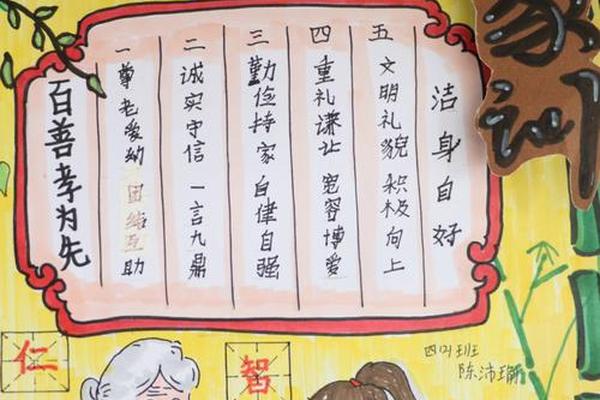 家训
百善孝为先
一 尊老爱幼 团结互助
二 诚实守信 一言九鼎
三 勤俭持家 自律自强
四 重礼谦让 宽容博爱
五 文明礼貌 积极向上
洁身自好
仁
智
四(2)班
陈沛